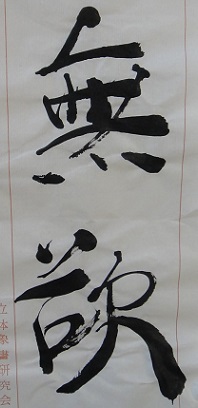 無欲
立体象書研究会